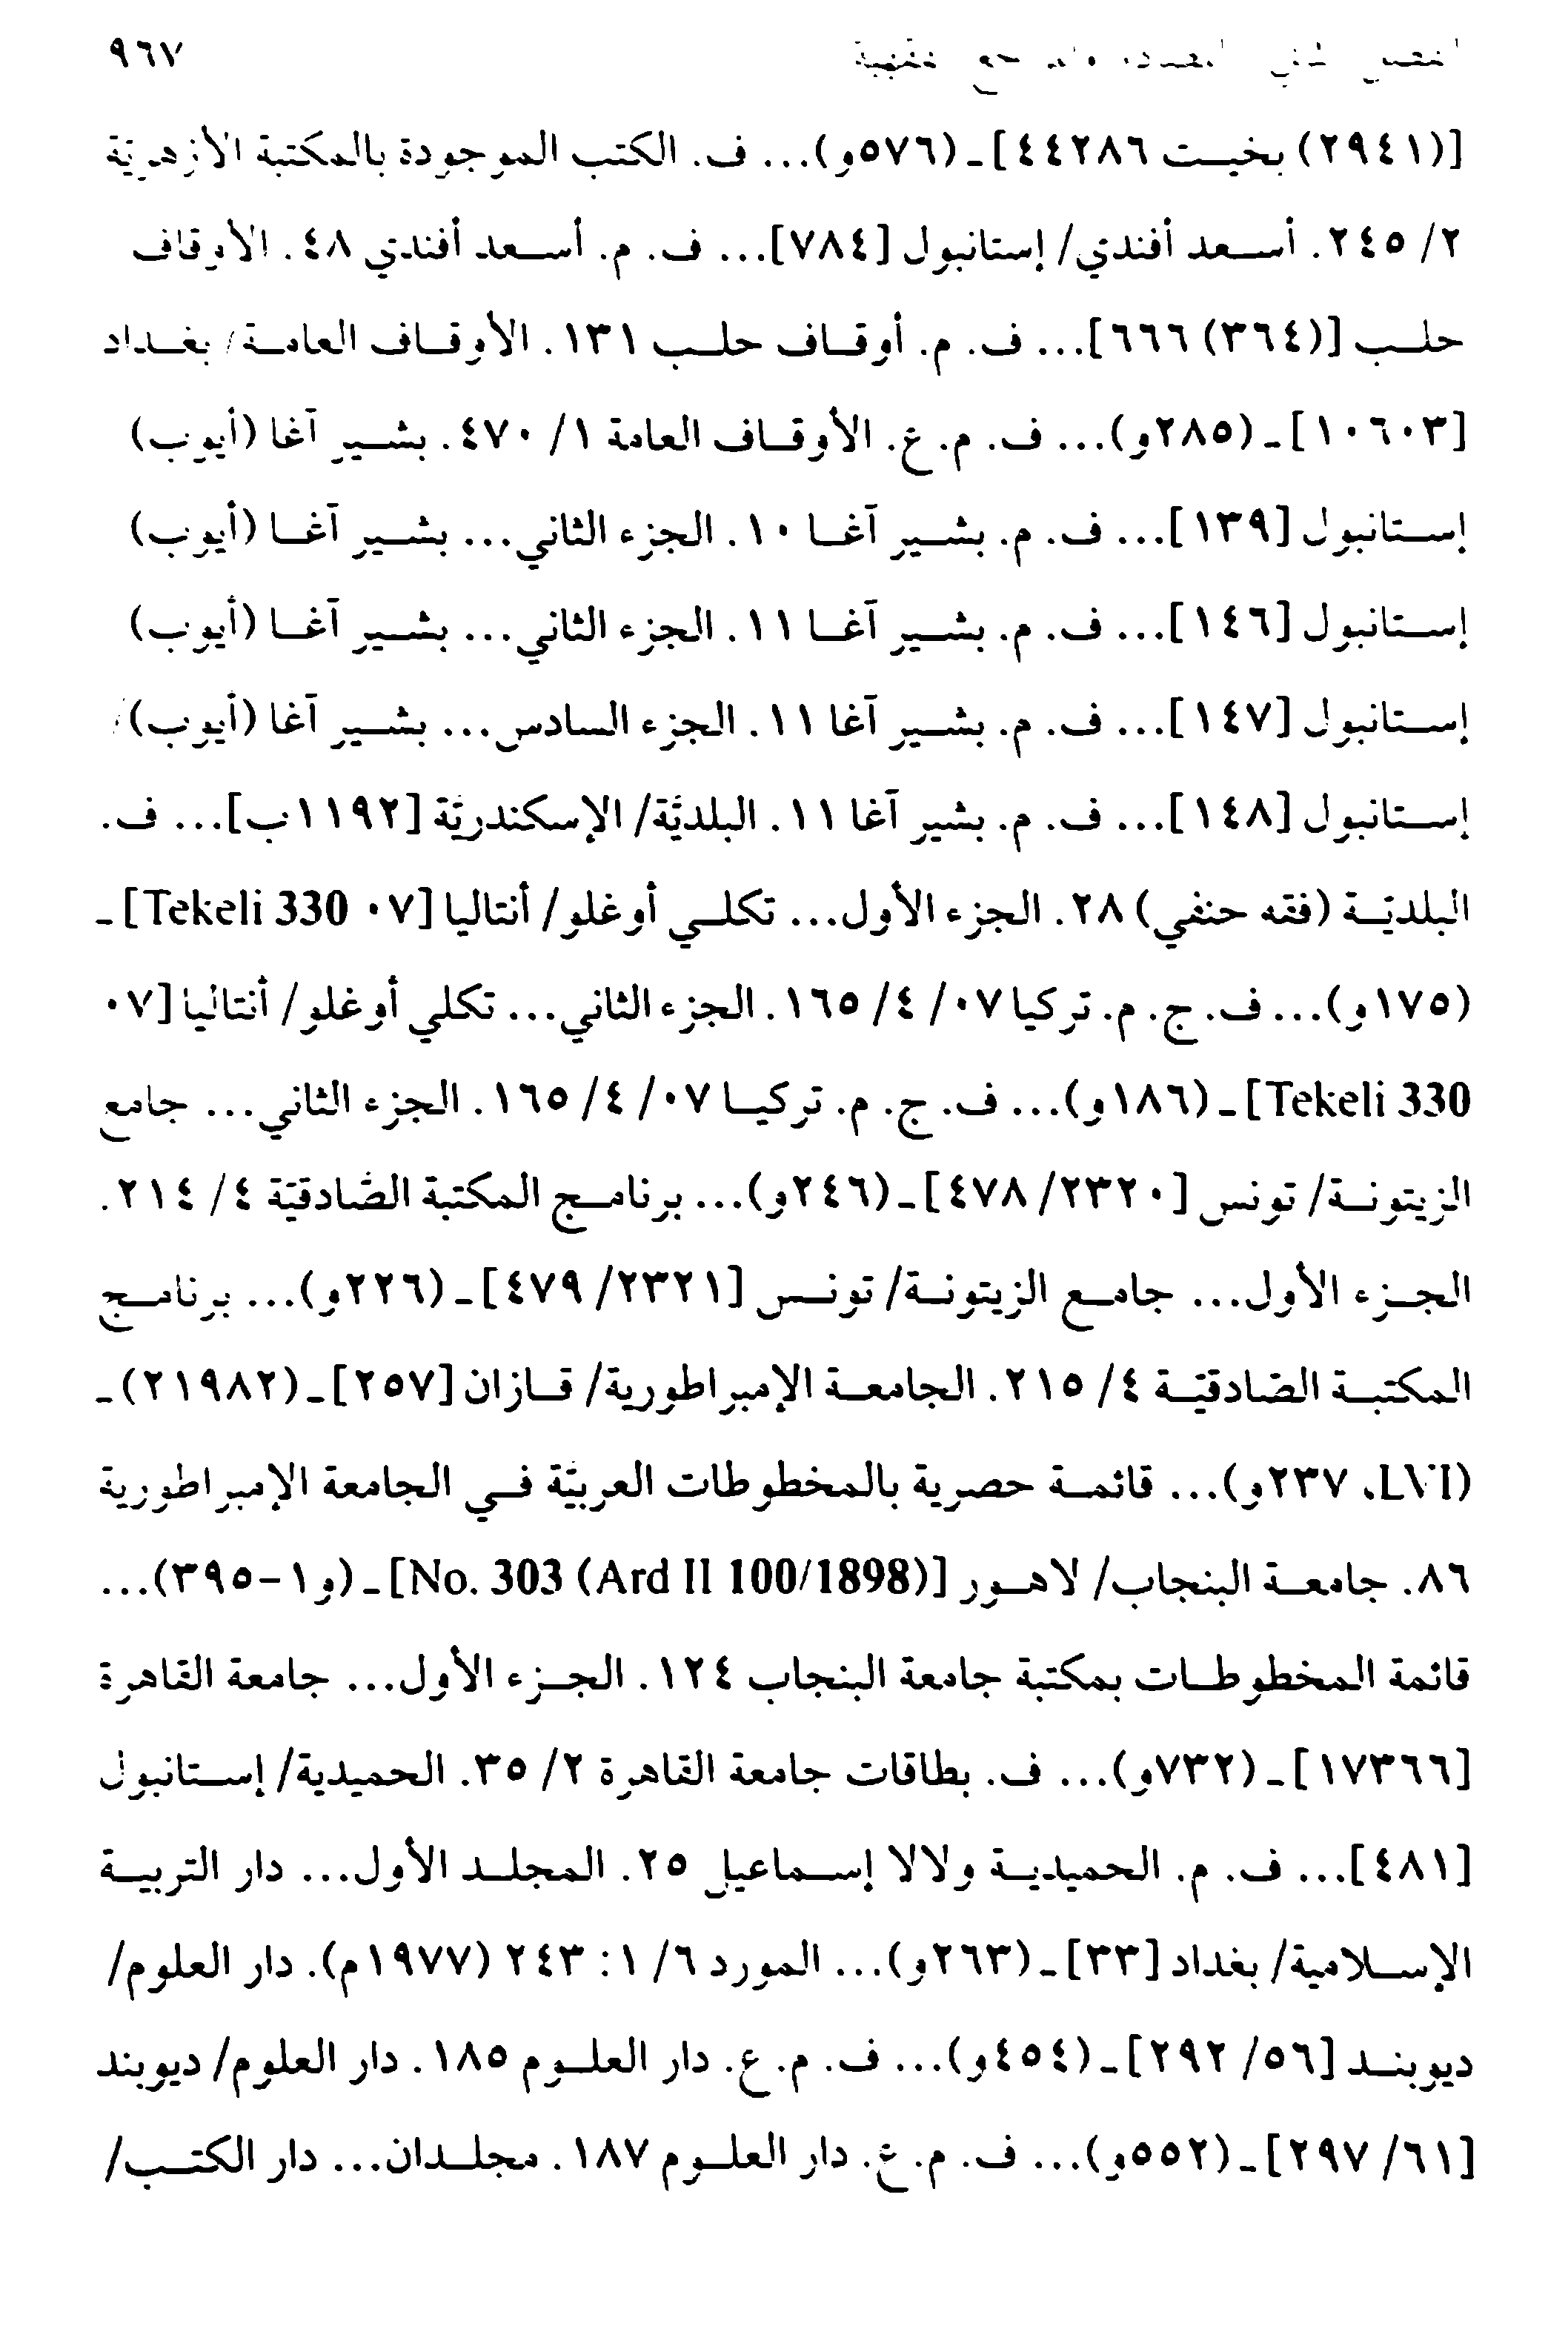 ٩٦٧
[(٢٩٤١) بخيـت ٤٤٢٨٦] ـ (٥٧٦و)... ف. الكتب الموجودة بالمكتبة الأزهريّة
٢/ ٢٤٥. أسـعد أفندي/ إستانبول [٧٨٤]... ف. م. أسـعد أفندي ٤٨. الأوقاف
حلـب [(٣٦٤) ٦٦٦]... ف. م. أوقـاف حلـب ١٣١. الأوقـاف العامـة/ بغـداد
[١٠٦٠٣] ـ (٢٨٥و)... ف. م. ع. الأوقـاف العامة ١/ ٤٧٠. بشـير آغا (أيوب)
إسـتانبول [١٣٩]... ف. م. بشـير آغـا ١٠. الجزء الثاني... بشـير آغـا (أيوب)
إسـتانبول [١٤٦]... ف. م. بشـير آغـا ١١. الجزء الثاني... بشـير آغـا (أيوب)
إسـتانبول [١٤٧]... ف. م. بشـير آغا ١١. الجزء السادس... بشـير آغا (أيوب)/
إسـتانبول [١٤٨]... ف. م. بشير آغا ١١. البلديّة/ الإسكندريّة [١١٩٢ب]... ف.
البلديّـة (فقه حنفي) ٢٨. الجزء الأول... تكلـي أوغلو/ أنتاليا [٠٧ Tekeli 330] ـ
(١٧٥و)... ف. ج. م. تركيا ٠٧/ ٤/ ١٦٥. الجزء الثاني... تكلي أوغلو/ أنتاليا [٠٧
Tekeli 330] ـ (١٨٦و)... ف. ج. م. تركيـا ٠٧/ ٤/ ١٦٥. الجزء الثاني... جامع
الزيتونـة/ تونس [٢٣٢٠/ ٤٧٨] ـ (٢٤٦و)... برنامـج المكتبة الصّادقيّة ٤/ ٢١٤.
الجـزء الأول... جامـع الزيتونـة/ تونـس [٢٣٢١/ ٤٧٩] ـ (٢٢٦و)... برنامـج
المكتبـة الصّادقيّـة ٤/ ٢١٥. الجامعـة الإمبراطورية/ قـازان [٢٥٧] ـ (٢١٩٨٢) ـ
(LVI، ٢٣٧و)... قائمـة حصرية بالمخطوطات العربيّة فـي الجامعة الإمبراطورية
٨٦. جامعـة البنجاب/ لاهـور [No. 303 (Ard II 100/1898)] ـ (و١-٣٩٥)...
قائمة المخطوطـات بمكتبة جامعة البنجاب ١٢٤. الجـزء الأول... جامعة القاهرة
[١٧٣٦٦] ـ (٧٣٢و)... ف. بطاقات جامعة القاهرة ٢/ ٣٥. الحميدية/ إسـتانبول
[٤٨١]... ف. م. الحميديـة ولالا إسـماعيل ٢٥. المجلـد الأول... دار التربيـة
الإسـلامية/ بغداد [٣٣] ـ (٢٦٣و)... المورد ٦/ ١: ٢٤٣ (١٩٧٧م). دار العلوم/
ديوبنـد [٥٦/ ٢٩٢] ـ (٤٥٤و)... ف. م. ع. دار العلـوم ١٨٥. دار العلوم/ ديوبند
[٦١/ ٢٩٧] ـ (٥٥٢و)... ف. م. ع. دار العلـوم ١٨٧. مجلـدان... دار الكتـب/